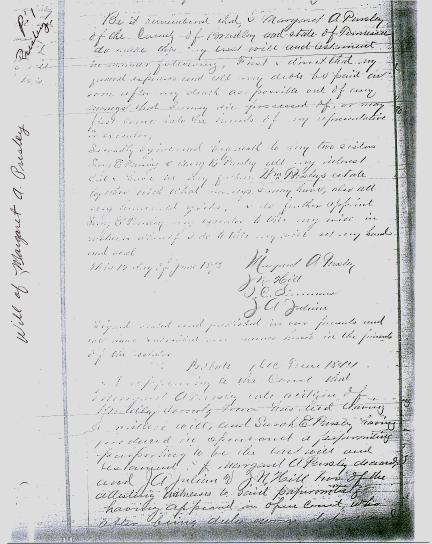 P. 1
Presley
Will of Margaret A. Presley
Be it remembered that I Margaret A Presley
of the County of Bradley and state of Tennessee
do make this my last will and testament
in manner following, First I direct that my
funeral expenses and all my debts be paid as
soon after my death as possible out of any
moneys that I may die possessed of, or may
first come into the hands of my representative
or executor,
Secondly I give and bequeath to my two sisters
Sarah E Presley & Mary Presley all my interest
that I have in my father Wm Presleys estate
together with what moneys I may have, also all
my I do further appoint
Sarah E Presley executor to this my will in
witness whereof I do to this my will set my hand
and seal
this 12 day of June
Margaret A Presley
J N Hill
J C
J A Julian
Signed sealed and published in our presence and
we have subscribed our names hereto in the presence
of the testator
Probate
It appearing to the Court that
Margaret A Presley late a citizen of
Bradley County Tenn has died leaving
a will, and Sarah E Presley having
produced in open court a paper writing
purporting to be the last will and
testament of Margaret A Presley deceased
and J A Julian & J N Hill two of the
attesting witnesses to said paper writing
having appeared in open Court, who
after being duly